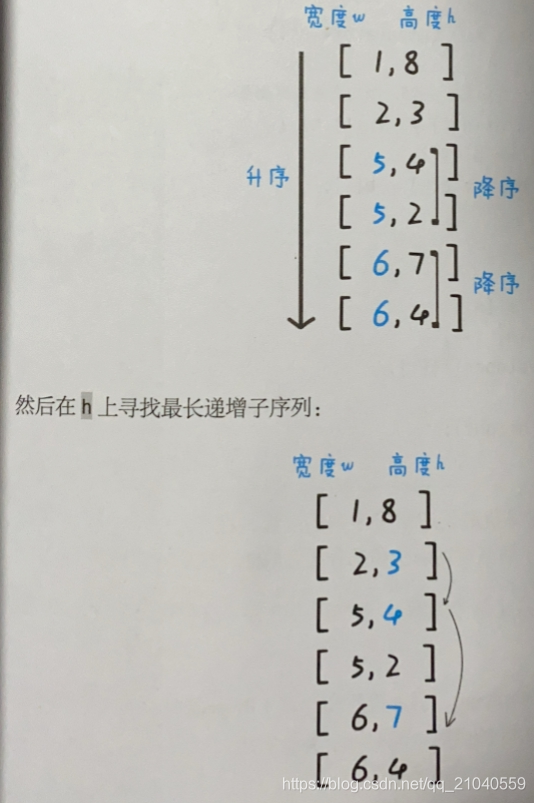 宽度w 高度h
[ 1,8 ]
[ 2,3 ]
[ 5,4 ]
升序
降序
[ 5,2 ]
[ 6,7 ]
降序
[ 6,4 ]
然后在 h 上寻找最长递增子序列：
宽度w 高度h
[ 1,8 ]
[ 2,3 ]
[ 5,4 ]
[ 5,2 ]
[ 6,7 ]
[ 6,4 ]
https://blog.csdn.net/qq_21040559